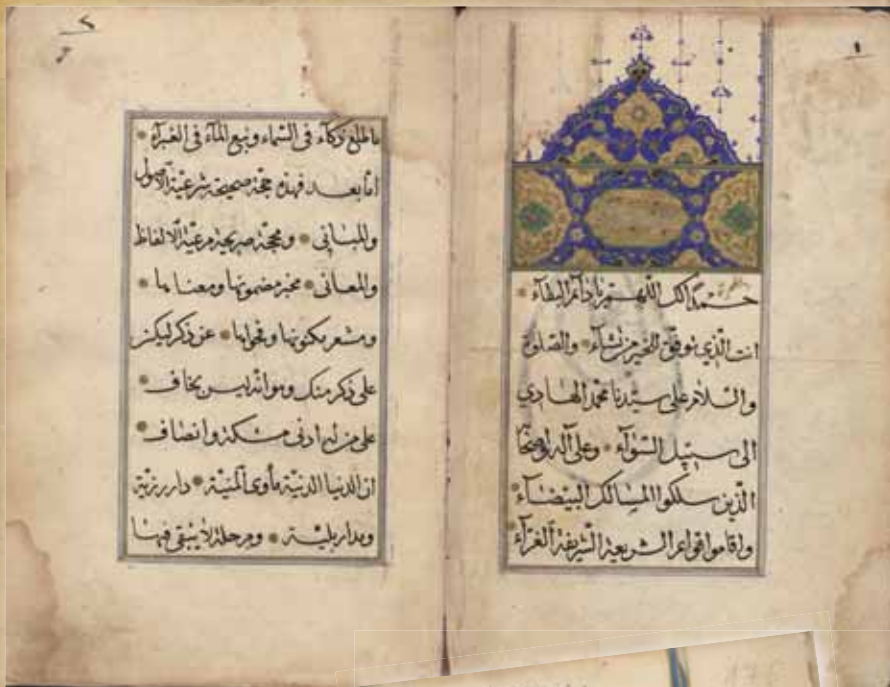 ١
حمداً لك اللهم يا دائم البقاء
انت الذي توفق الخير من تشاء والصلوة
والسلام على سيدنا محمد الهادي
الى سبيل السوآء وعلى آله
الذين سلكوا المسالك البيضاء
واقاموا قواعد الشريعة الشريفة الغرآء
٢
ما طلع ذكآء فى السّماء ونبع المآء فى الغبرآء
امّا بعد فهذه حجّة صحيحة شرعيّة الاصول
والمبانى ومحجّة صريحة مرعيّة الالفاظ
والمعانى مخبر مضمونها ومعناها
ومشعر مكنونها وفحواها عن ذكر ليكن
على ذكر منك وهو انّه ليس بخاف
على من له ادنى مسكة وانصاف
ان الدنيا الدنيّة مأوى المنيّة دار رزيّة
ومدار بليّة ومرحلة لا يبقى فيها